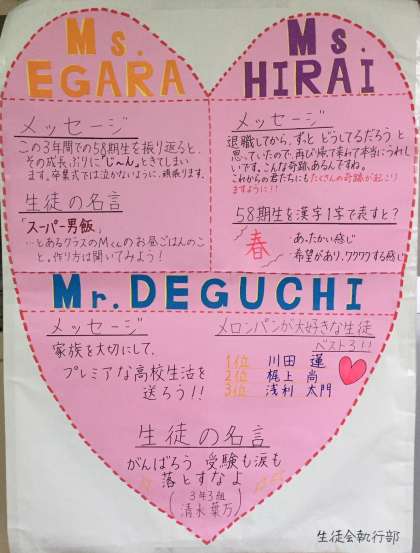 Ms.
EGARA
メッセージ
この3年間での58期生を振り返ると、
その成長ぶりに「じ〜ん」ときてしまい
ます。卒業式では泣かないように、頑張ります。
生徒の名言
「スーパー男飯」
…とあるクラスのMくんのお昼ごはんのこ
と。作り方は聞いてみよう!
Ms.
HIRAI
メッセージ
退職してから、ずっとどうしてるだろうと
思っていたので、再び帰って来れて本当にうれし
いです。こんな奇跡あるんですね。
これからの君たちにもたくさんの奇跡が起こり
ますように!!
58期生を漢字1字で表すと?
春
・あったかい感じ
・希望があり、ワクワクする感じ
Mr.DEGUCHI
メッセージ
家族を大切にして、
プレミアな高校生活を
送ろう!!
メロンパンが大好きな生徒
ベスト3!!
1位 川田 蓮
2位 梶上 尚
3位 浅利 大門
生徒の名言
がんばろう 受験も涙も
落とすなよ
(3年3組
清水葉万)
生徒会執行部